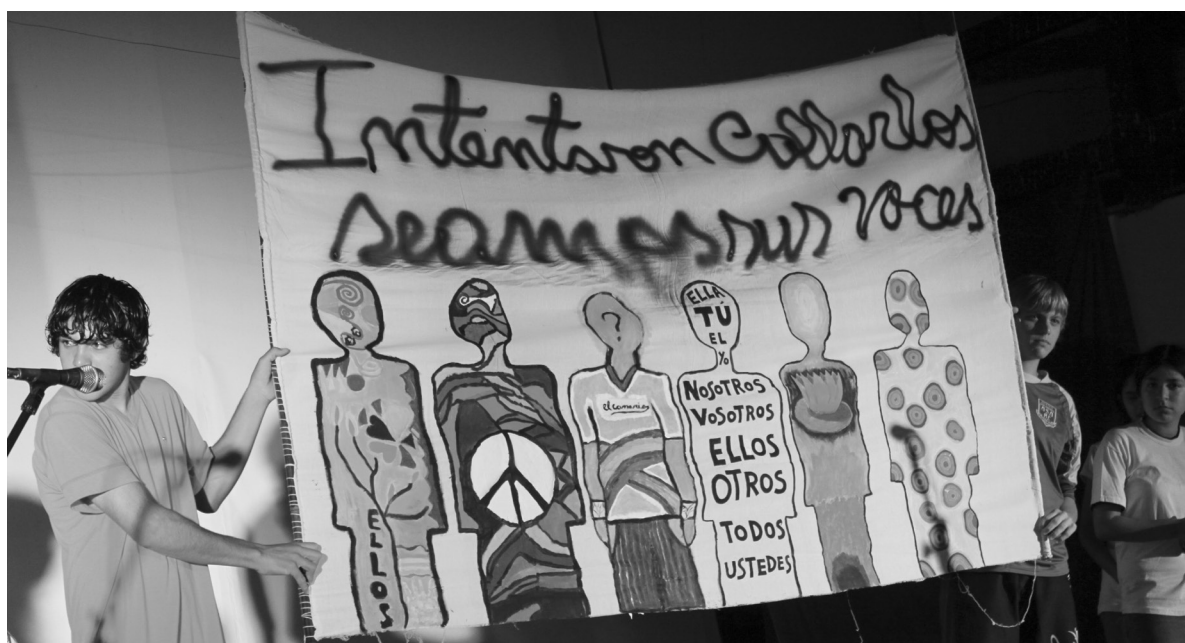 Intentaron Callarlos
seamos sus voces
ELLOS
?
el camarin
ELLA
TÚ
EL
YO
NOSOTROS
VOSOTROS
ELLOS
OTROS
TODOS
USTEDES